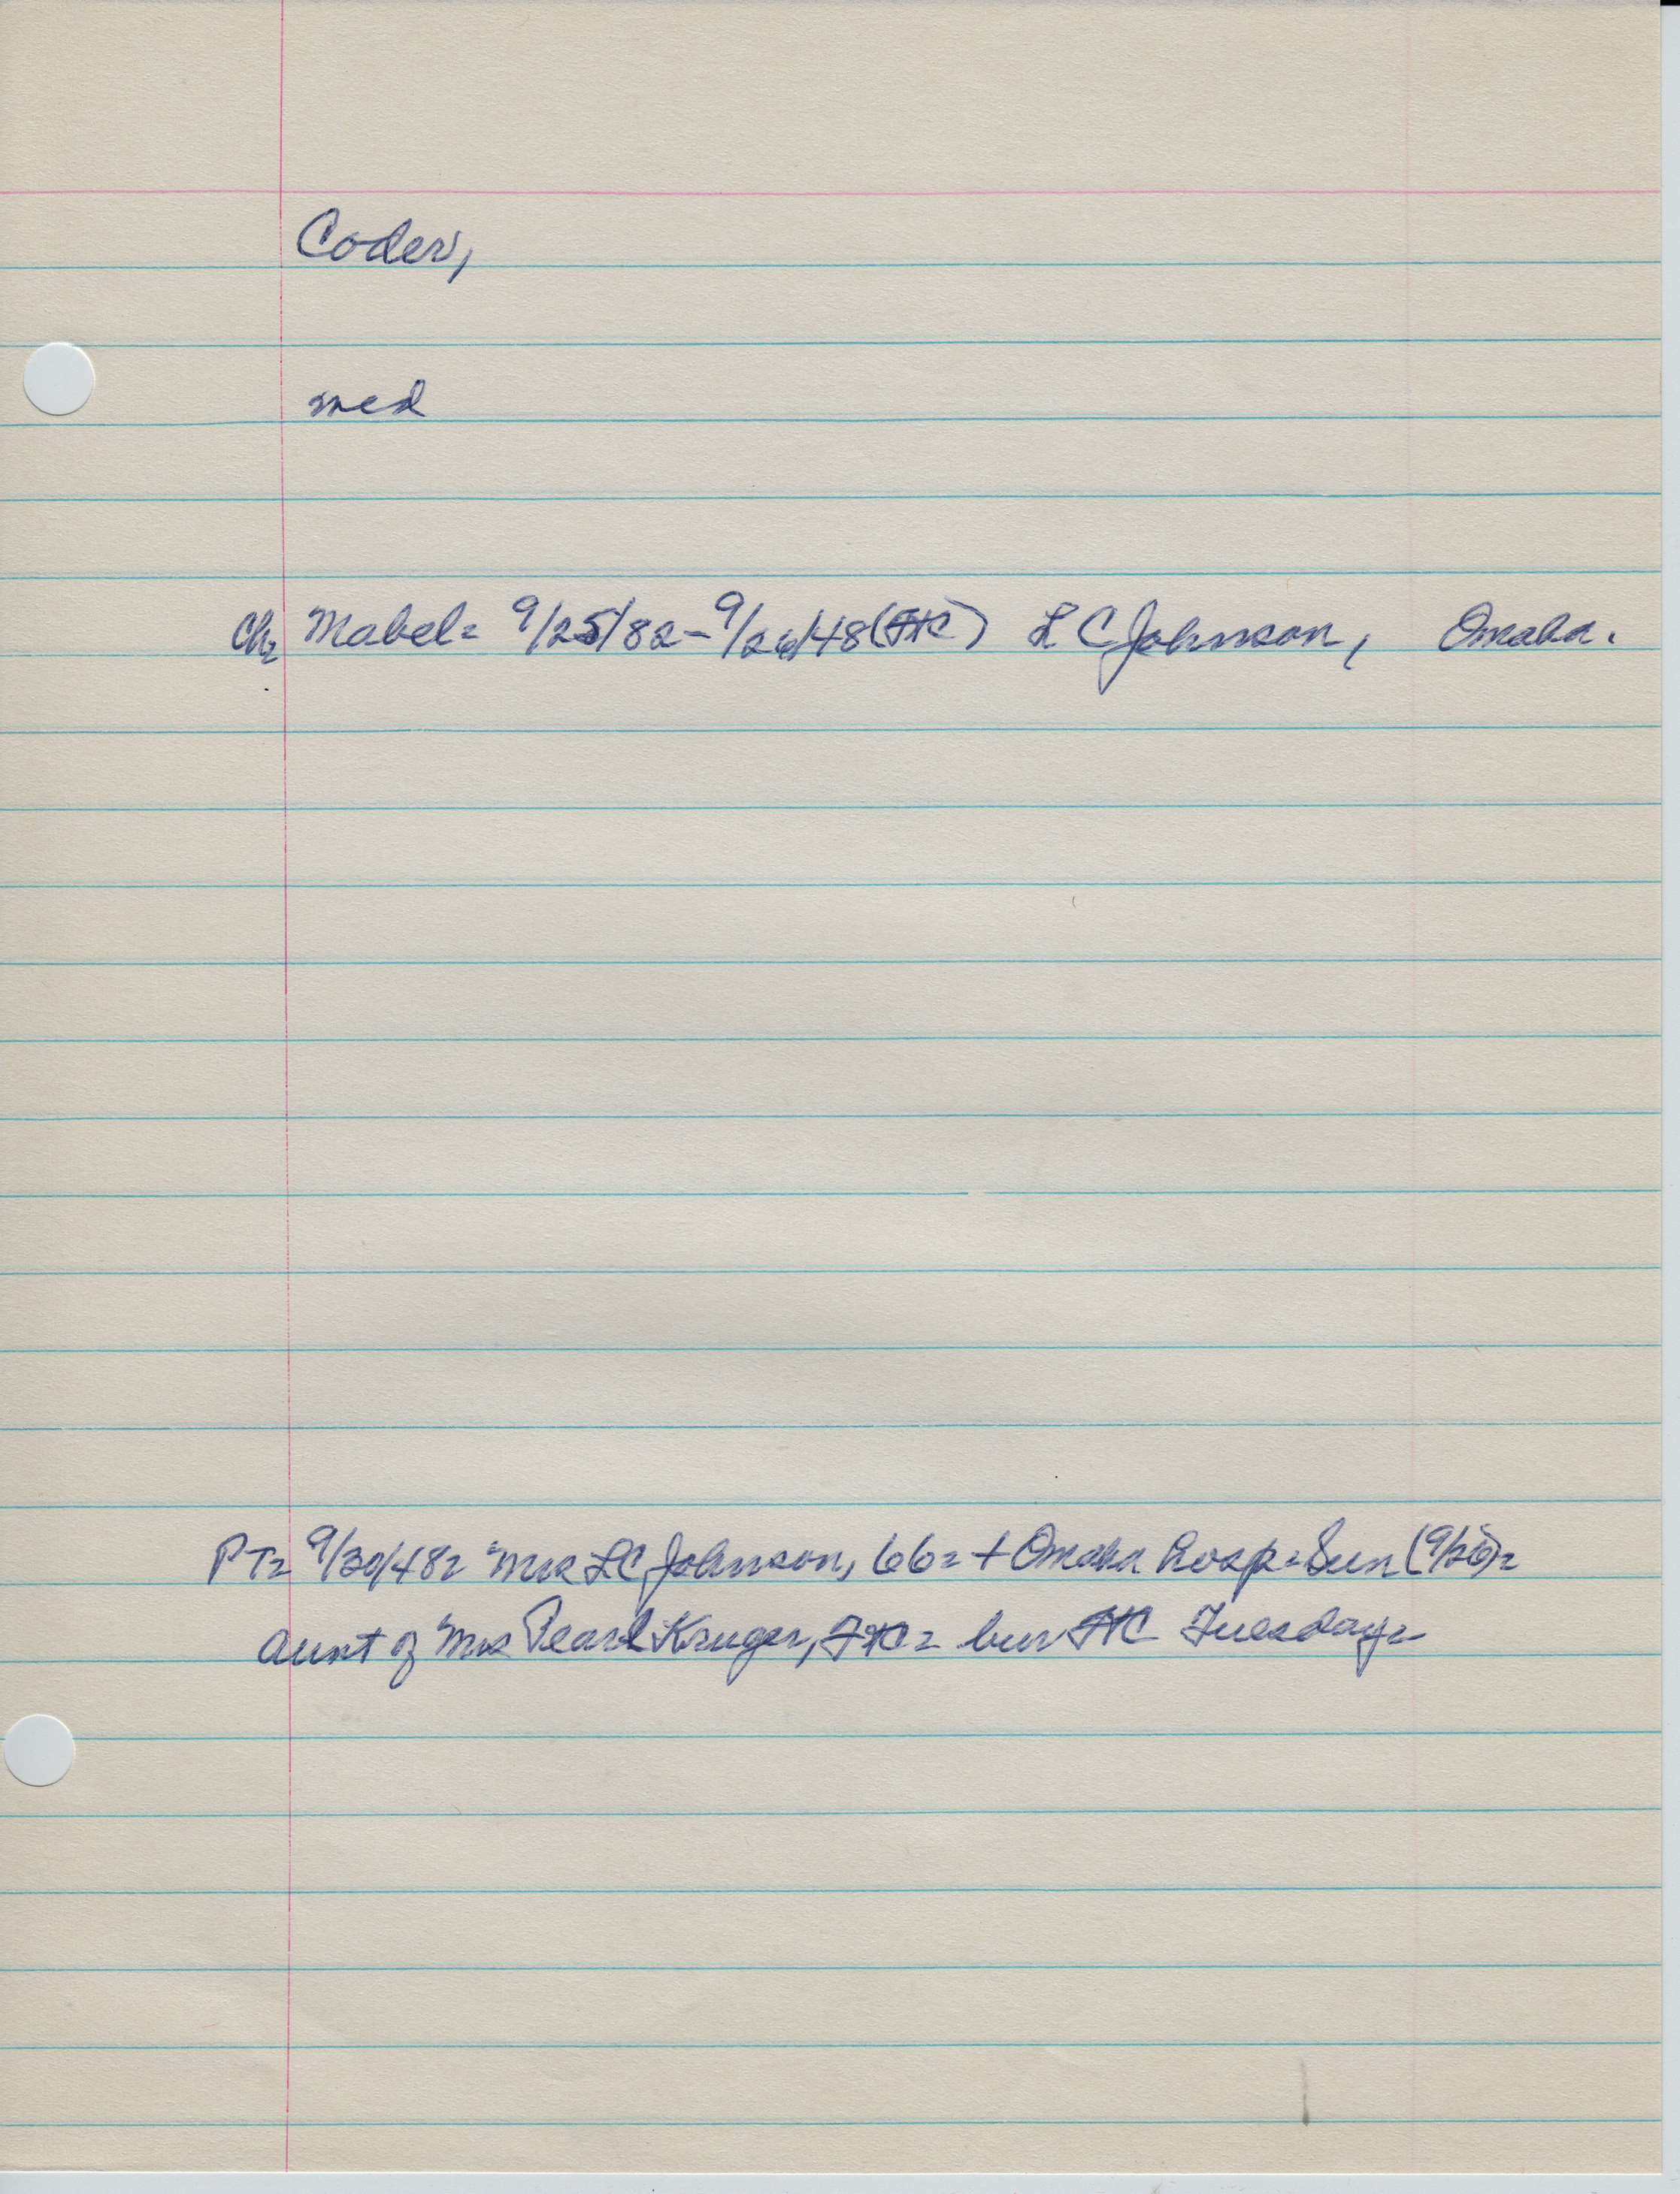 Coder,
med
Ch= Mabel= 9/25/82-9/26/48(FtC) L C Johnson, Omaha.
PT= 9/30/48= Mrs LC Johnson, 66= + Omaha hosp= Sun (9/26)=
aunt of Mrs Pearl Kruger, FtC= bur FtC Tuesday=